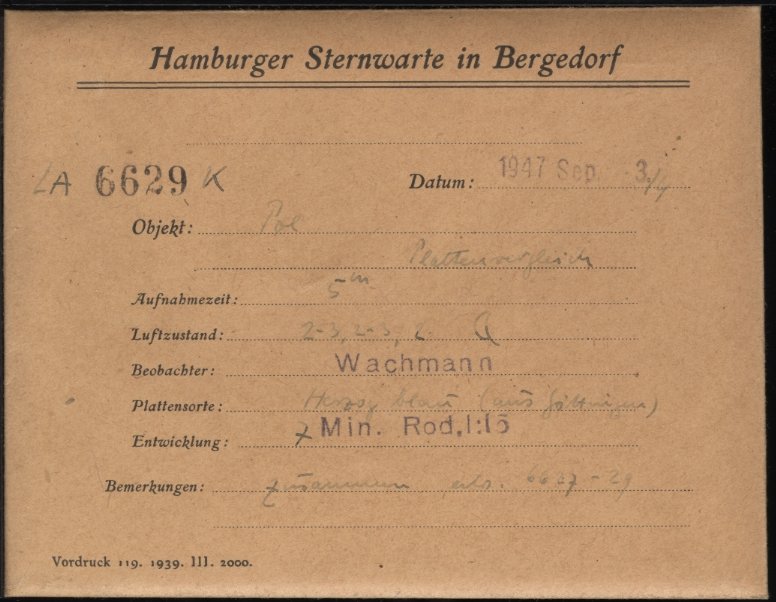 Hamburger Sternwarte in Bergedorf
LA 6629 K
Datum: 1947 Sep. 3./4
Objekt: Pol
Plattenvergleich
Aufnahmezeit: 5m
Luftzustand: 2-3, 2-3,
Beobachter: Wachmann
Plattensorte: Herzog blau (aus Göttingen)
Entwicklung: 7 Min. Rod. 1:15
Bemerkungen: zusammen 6627-29
Vordruck 119. 1939. III. 2000.